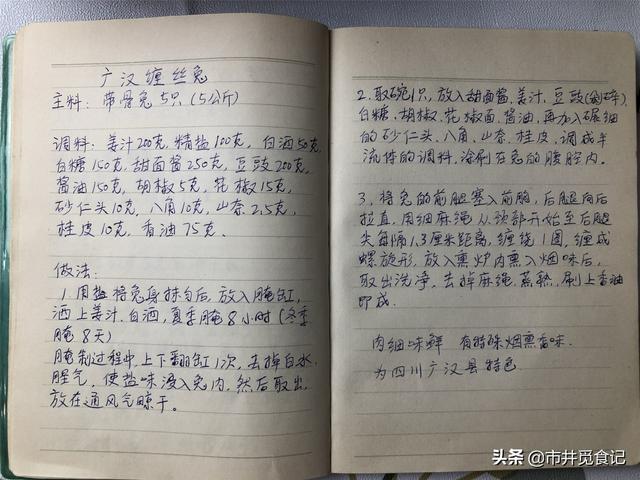 广汉缠丝兔
主料: 带骨兔5只(5公斤)
调料: 姜汁200克, 精盐100克, 白酒50克,
白糖150克, 甜面酱250克, 豆豉200克,
酱油150克, 胡椒5克, 花椒15克,
砂仁头10克, 八角10克, 山奈2.5克,
桂皮10克, 香油75克.
做法:
1. 用盐将兔身抹匀后, 放入腌缸,
洒上姜汁.白酒, 夏季腌8小时(冬季
腌8天)
腌制过程中, 上下翻缸1次, 去掉白水,
腥气, 使盐味浸入兔内, 然后取出,
放在通风气晾干。
2. 取碗1只, 放入甜面酱.姜汁.豆豉(剁碎).
白糖.胡椒.花椒面.酱油, 再加入碾细
的砂仁头.八角.山奈.桂皮, 调成半
流体的调料, 涂刷在兔的腹腔内.
3. 将兔的前腿塞入前胸, 后腿向后
拉直, 用细麻绳从颈部开始至后腿
尖每隔1.3厘米距离, 缠绕1圈, 缠成
螺旋形, 放入熏炉内熏入烟味后,
取出洗净, 去掉麻绳, 蒸熟, 刷上香油
即成.
肉细味鲜 有特殊烟熏香味.
为四川广汉县特色
头条 @市井觅食记